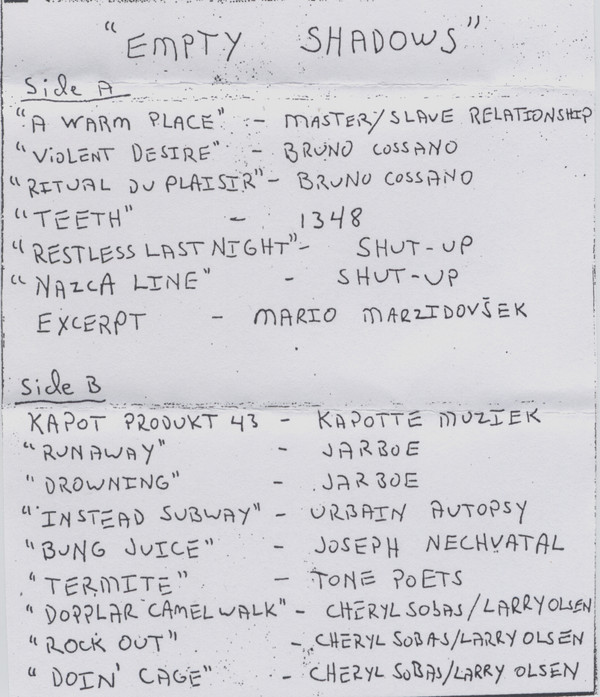 "EMPTY SHADOWS"
Side A
"A WARM PLACE" - MASTER/SLAVE RELATIONSHIP
"VIOLENT DESIRE" - BRUNO COSSANO
"RITUAL DU PLAISIR" - BRUNO COSSANO
"TEETH" - 1348
"RESTLESS LAST NIGHT" - SHUT-UP
"NAZCA LINE" - SHUT-UP
EXCERPT - MARIO MARZIDOVŠEK
Side B
KAPOT PRODUKT 43 - KAPOTTE MUZIEK
"RUNAWAY" - JARBOE
"DROWNING" - JARBOE
"INSTEAD SUBWAY" - URBAIN AUTOPSY
"BUNG JUICE" - JOSEPH NECHVATAL
"TERMITE" - TONE POETS
"DOPPLAR CAMEL WALK" - CHERYL SOBAS/LARRY OLSEN
"ROCK OUT" - CHERYL SOBAS/LARRY OLSEN
"DOIN' CAGE" - CHERYL SOBAS/LARRY OLSEN